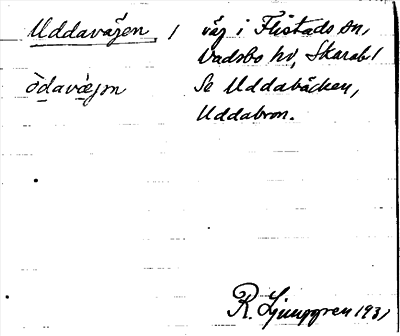 Uddavägen / väg i Flistads sn,
Vadsbo hd, Skarab. l
ödavæjɲ Se Uddabäcken,
Uddabron.
R. Ljunggren 1931